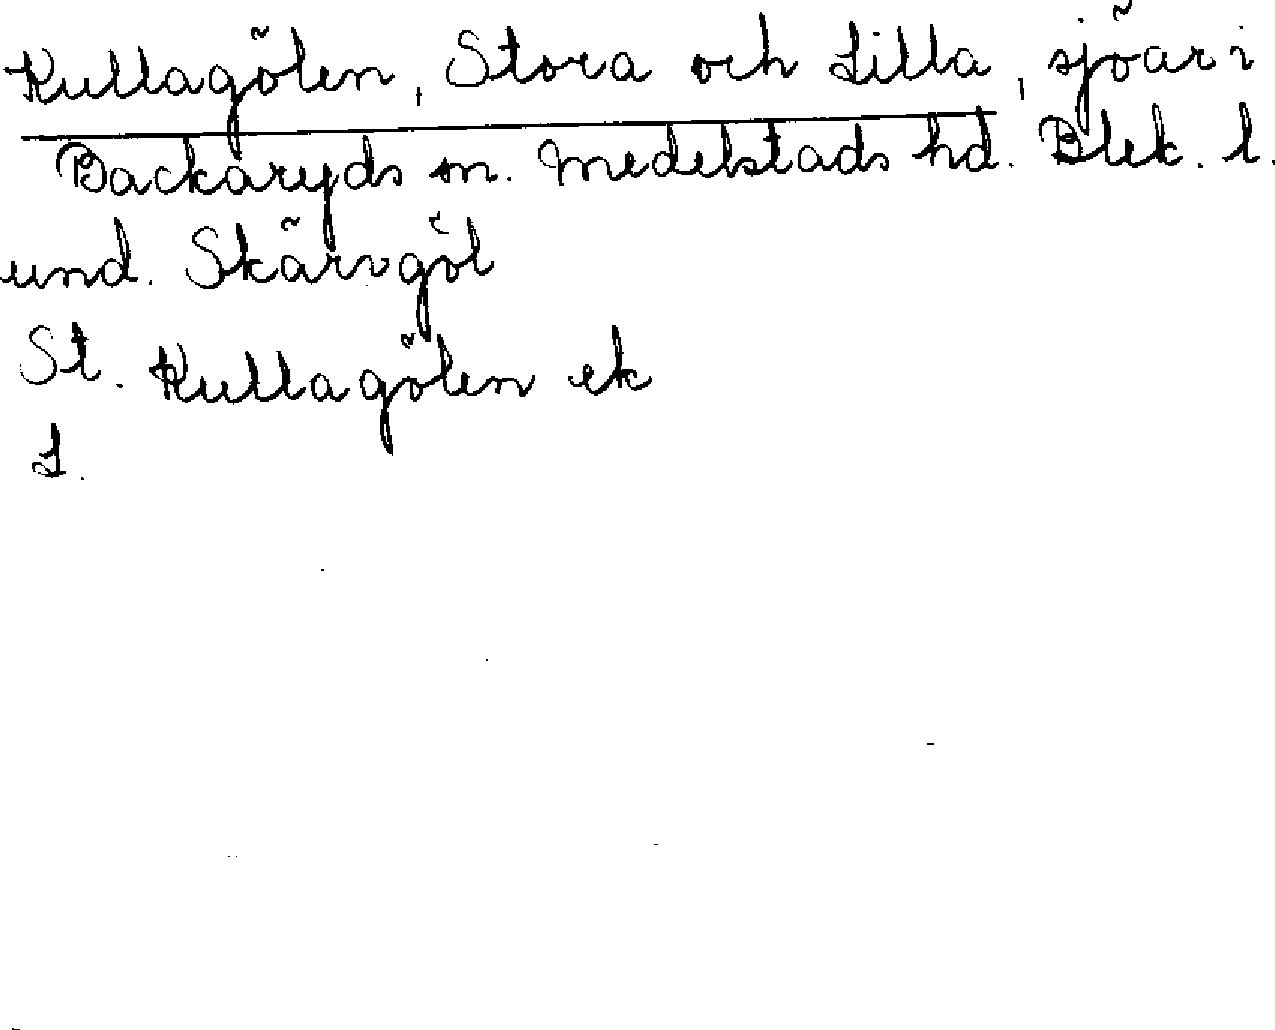 Kullagölen, Stora och Lilla, sjöar i
Backaryds sn. Medelstads hd. Blek. l.
und. Skärvgöl
St. Kullagölen ek
L.